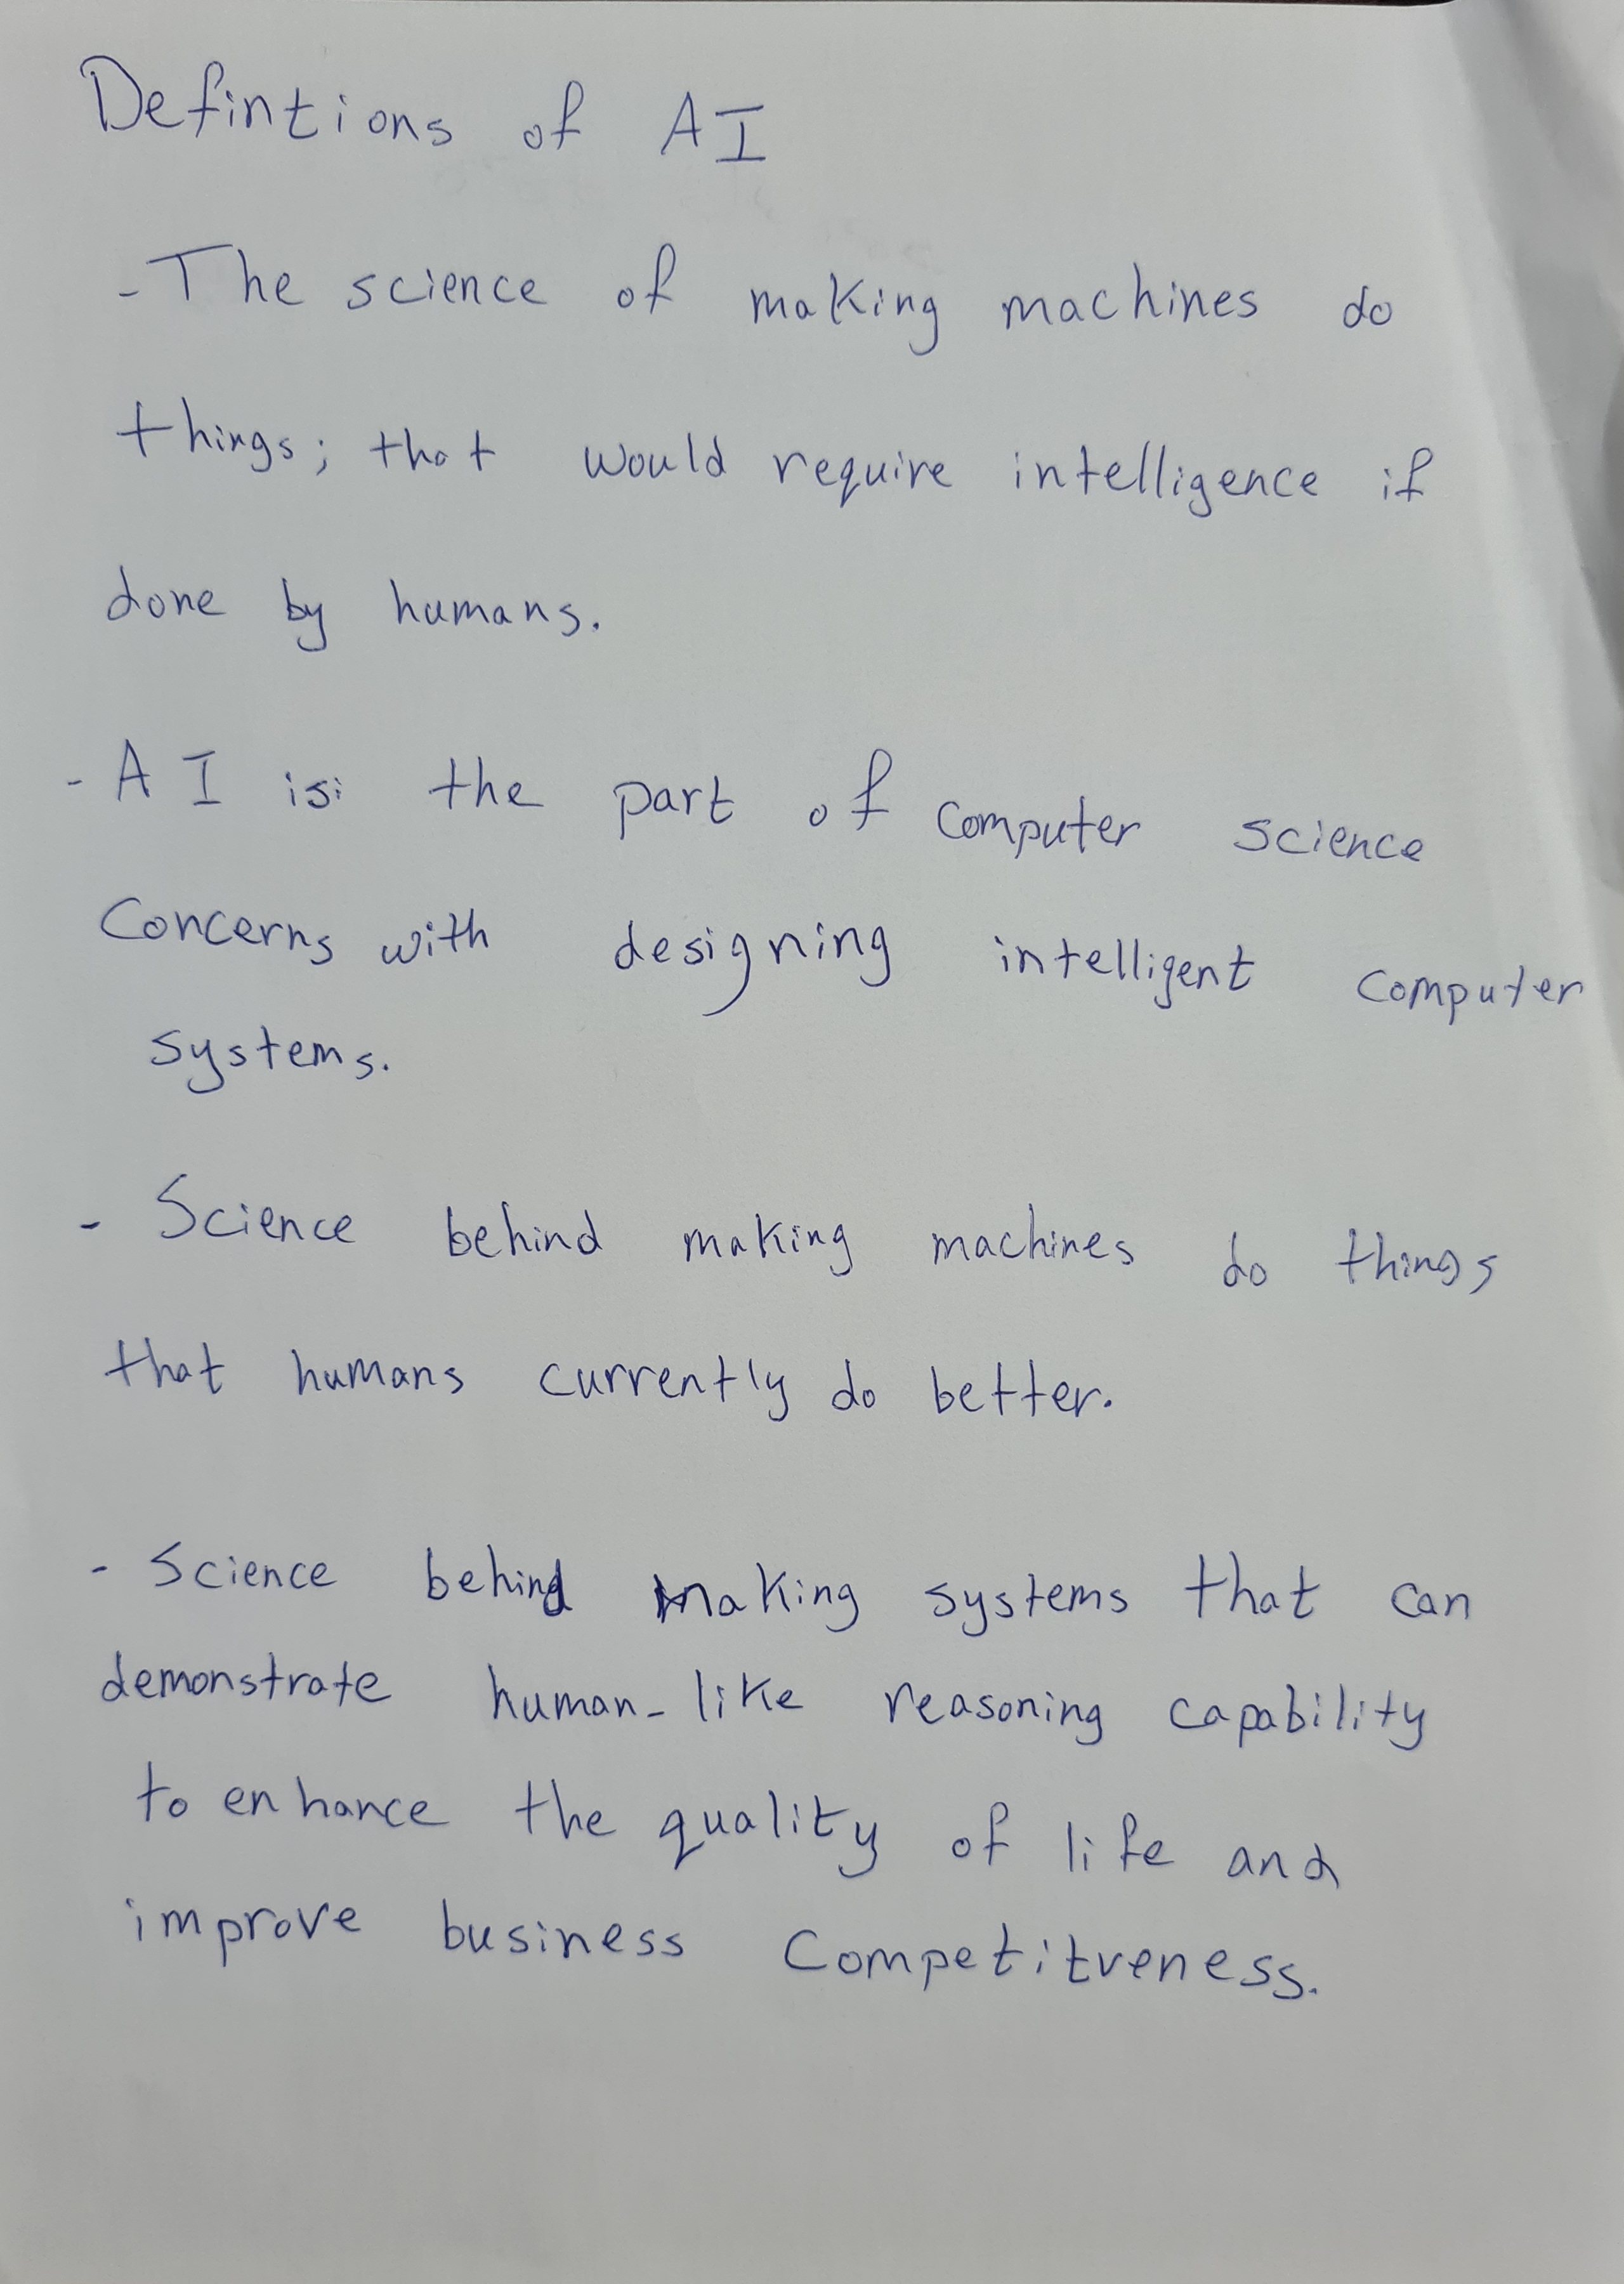 Defintions of AI
- The science of making machines do
things; that would require intelligence if
done by humans.
- AI is: the part of computer science
Concerns with designing intelligent computer
systems.
- Science behind making machines do things
that humans currently do better.
- Science behind making systems that can
demonstrate human-like reasoning capability
to enhance the quality of life and
improve business Competitveness.